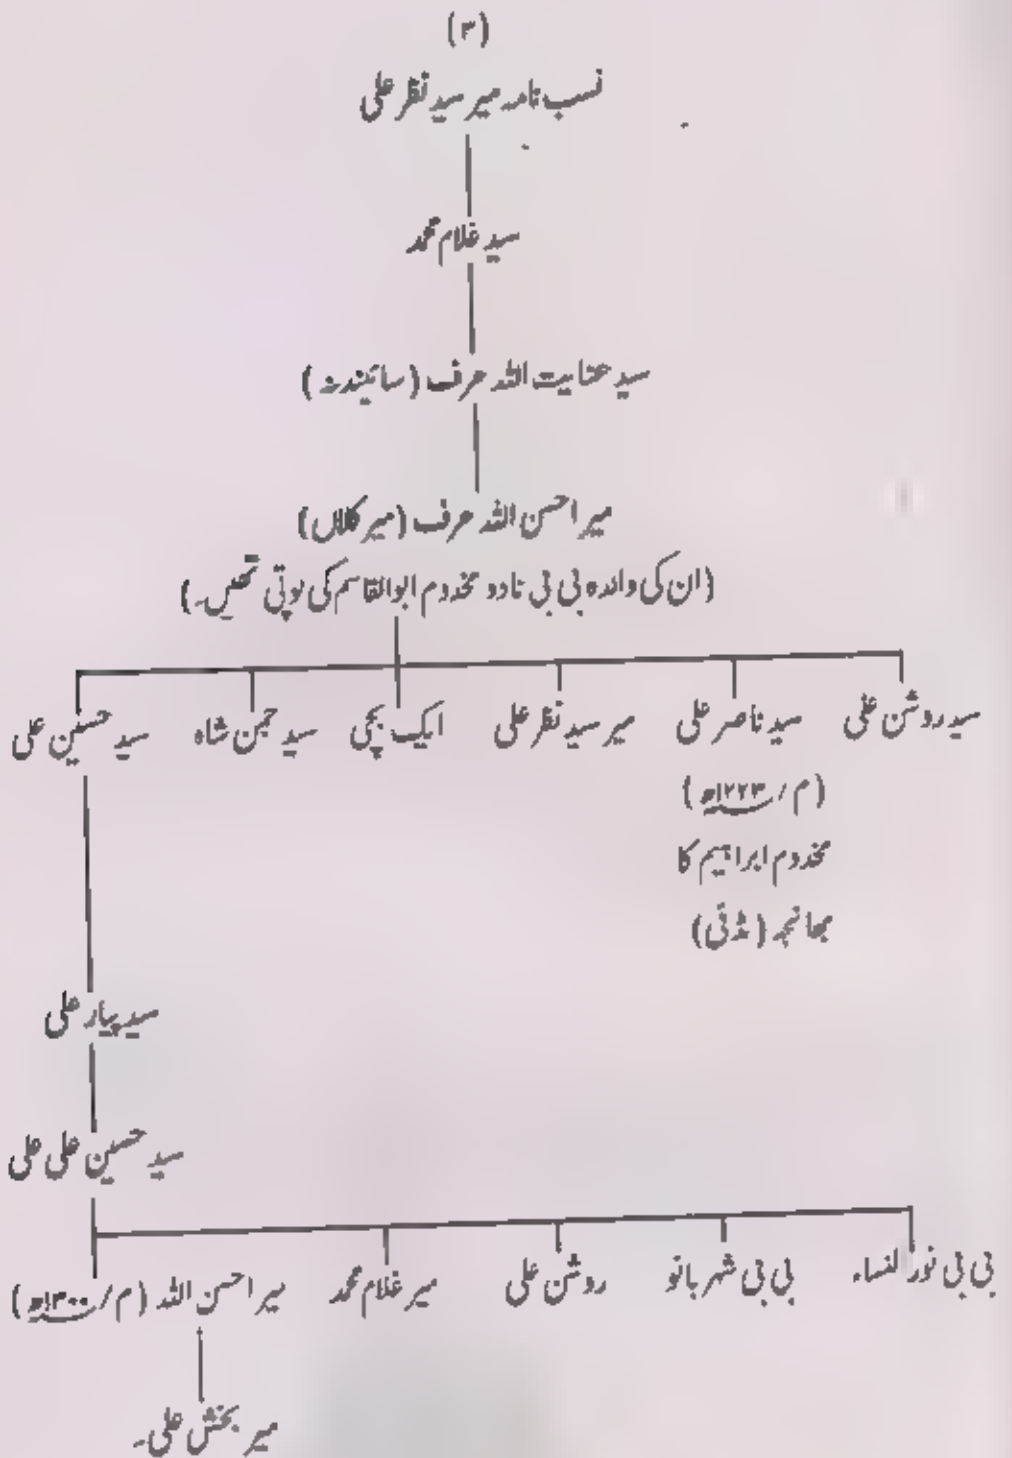 (۳)
نسب نامہ میر سید نظر علی
سید غلام محمد
سید عنایت اللہ عرف (سائیندنہ)
میر احسن اللہ عرف (میر کلاں)
(ان کی والدہ بی بی نادو مخدوم ابوالقاسم کی پوتی تھیں۔)
سید روشن علی سید ناصر علی میر سید نظر علی ایک بچی سید جمن شاہ سید حسنین علی
(م/۱۲۲۳ھ)
مخدوم ابراہیم کا
بھانجہ (نڈنی)
سید پیار علی
سید حسین علی علی
بی بی نورالنساء بی بی شہر بانو روشن علی میر غلام محمد میر احسن اللہ (م/۱۳۰۰ھ)
میر بخش علی۔